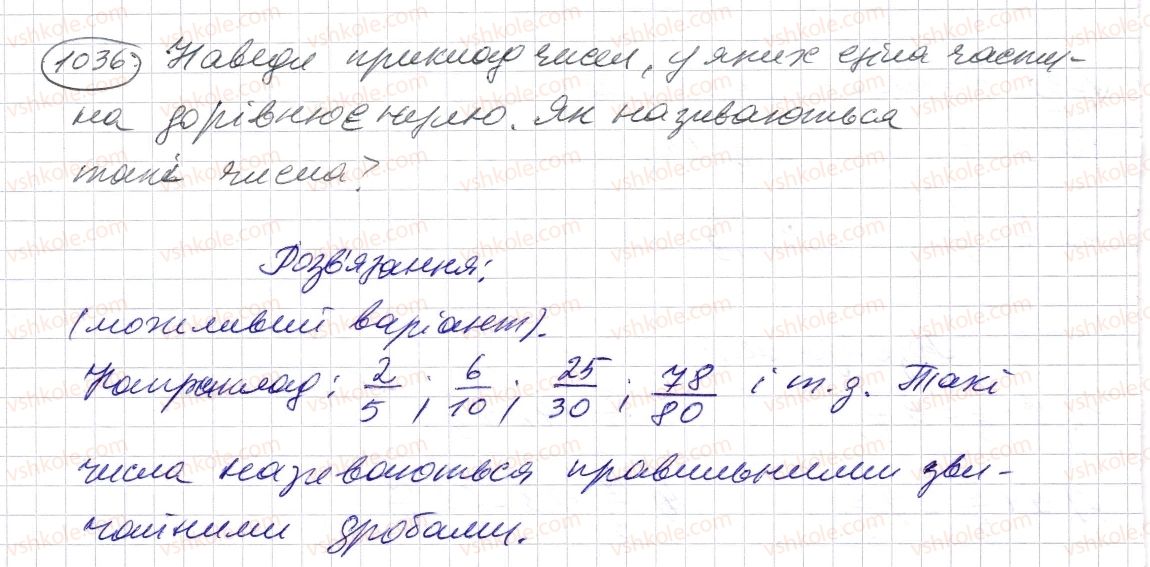 1036. Наведи приклад чисел, у яких ціла части-
на дорівнює нулю. Як називаються
такі числа?
Розв'язання:
(можливий варіант).
Наприклад: 2/5; 6/10; 25/30; 78/80 і т.д. Такі
числа називаються правильними зви-
чайними дробами.
vshkole.com